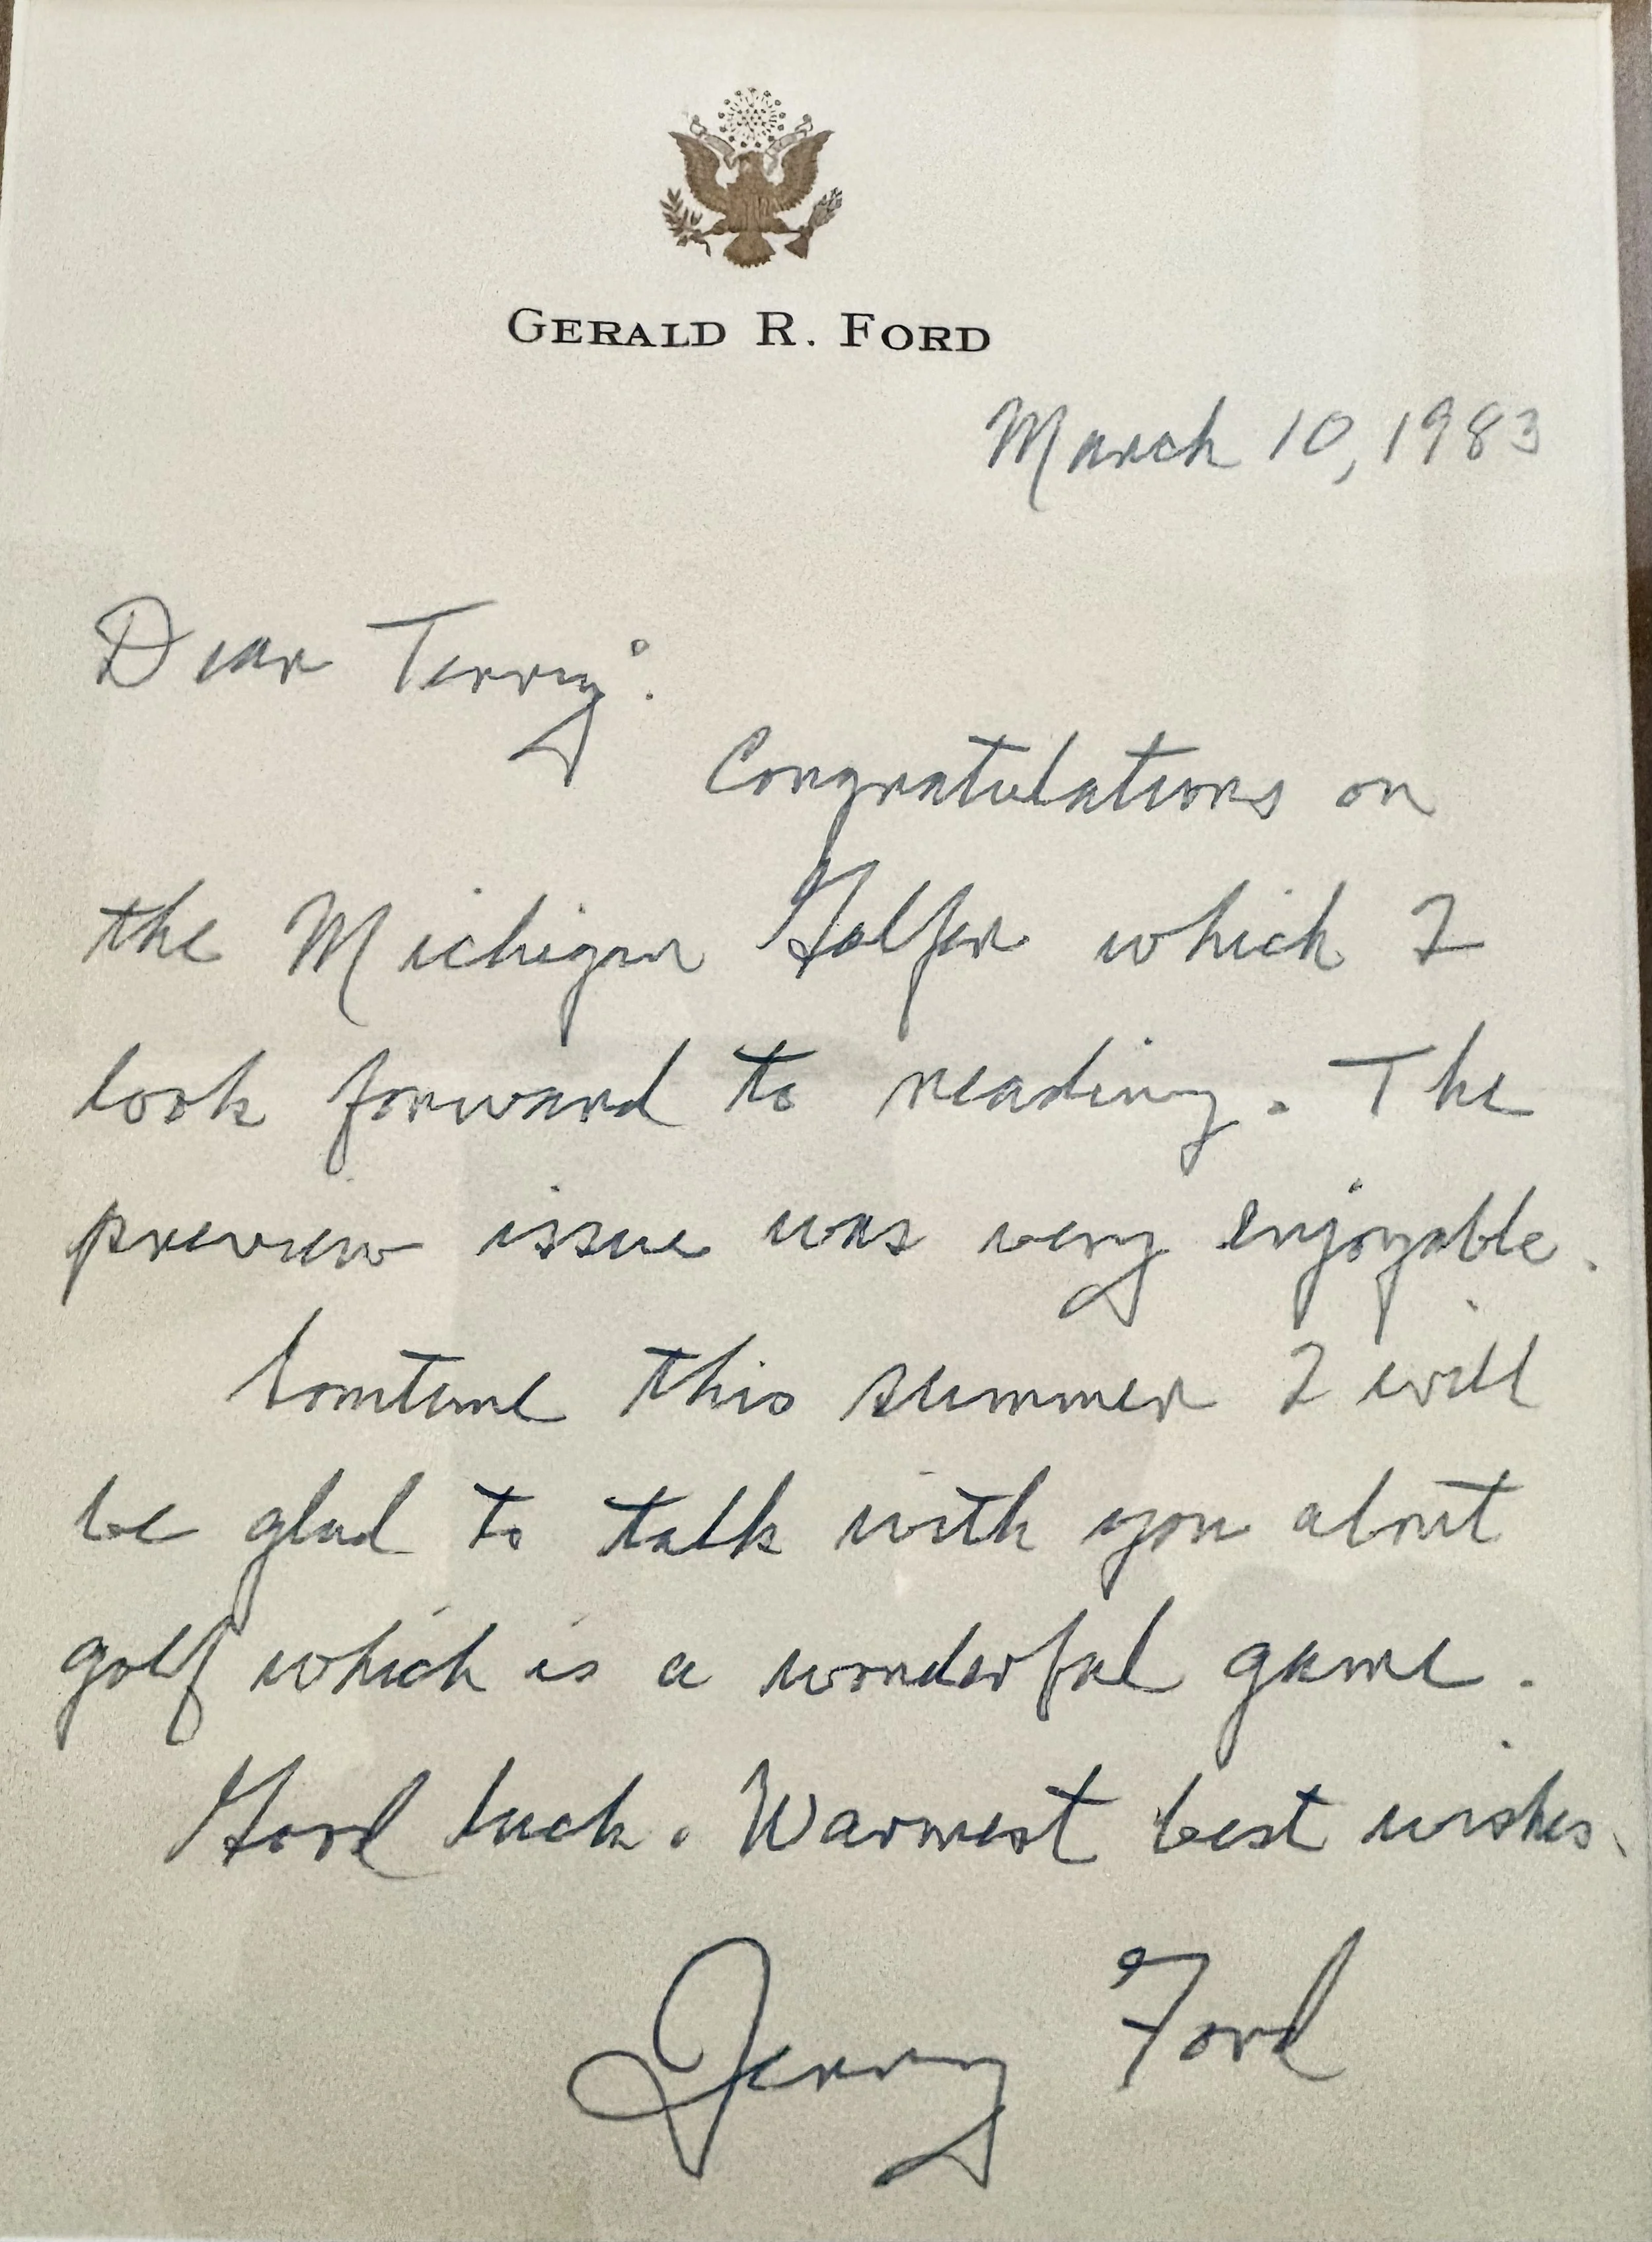 GERALD R. FORD
March 10, 1983
Dear Terry:
Congratulations on
the Michigan Golfer which I
look forward to reading. The
preview issue was very enjoyable.
Somtime this summer I will
be glad to talk with you about
golf which is a wonderful game.
Good luck. Warmest best wishes.
Jerry Ford